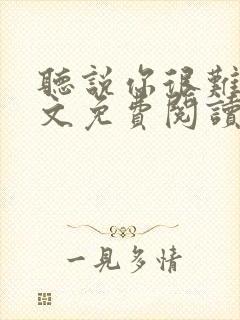 聽說你很難
文免費閱讀
一見多情